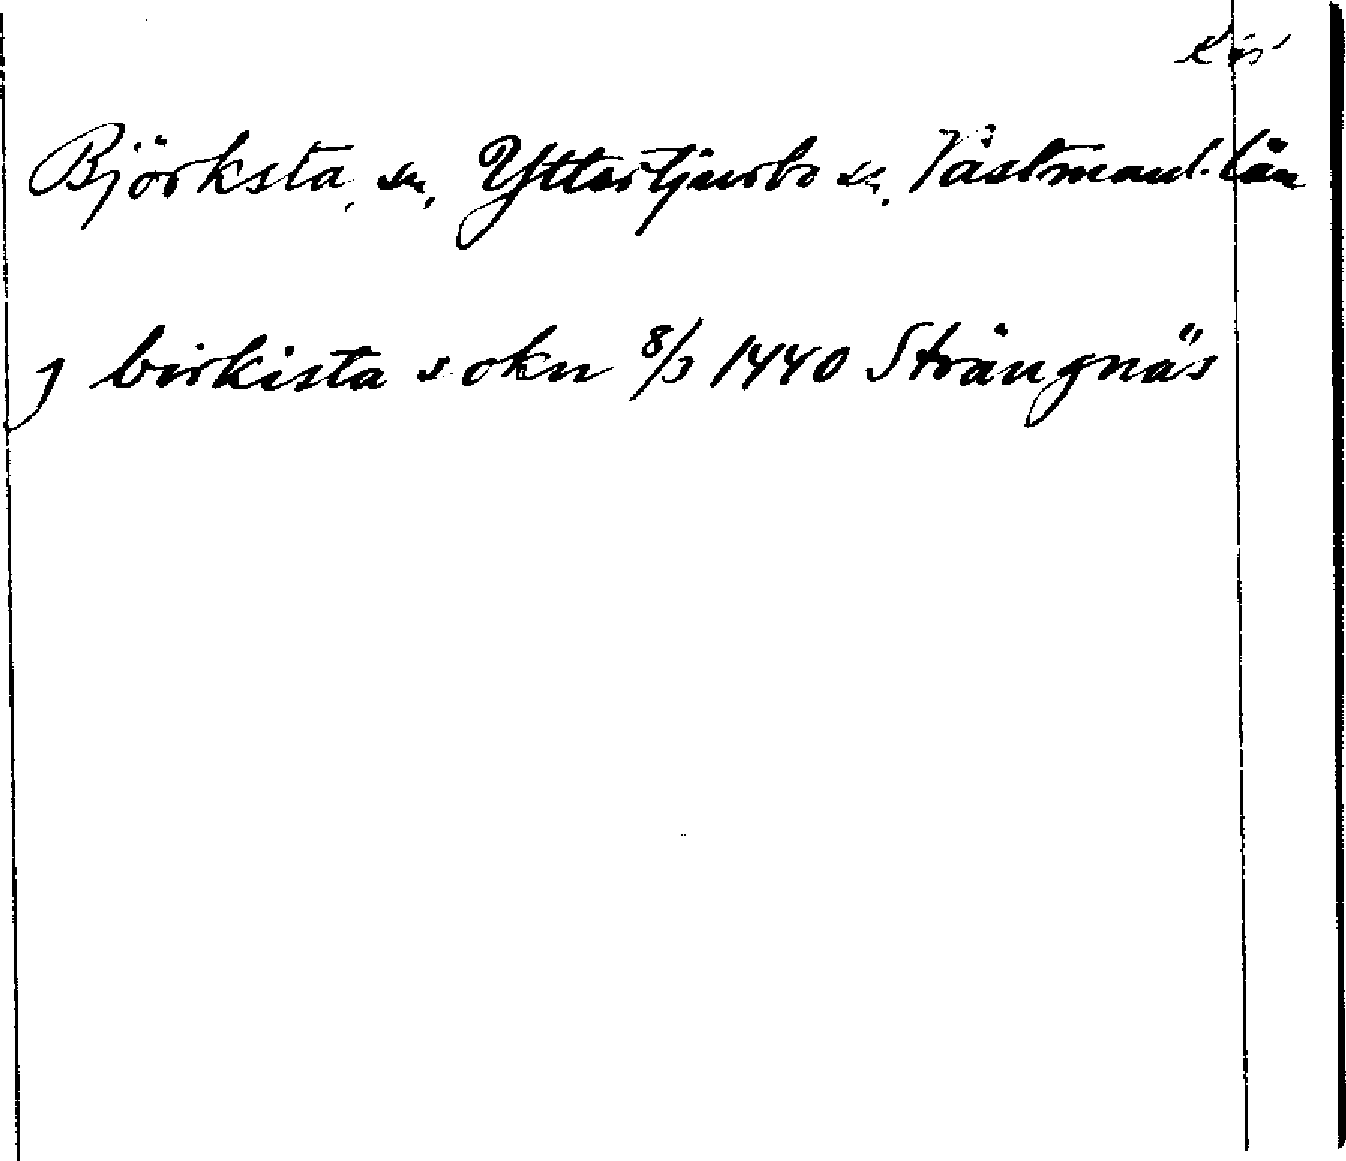 Björksta, sn, Yttertjurbo sn. Västmanl. län
J birkista sokn 8/3 1440 Strängnäs